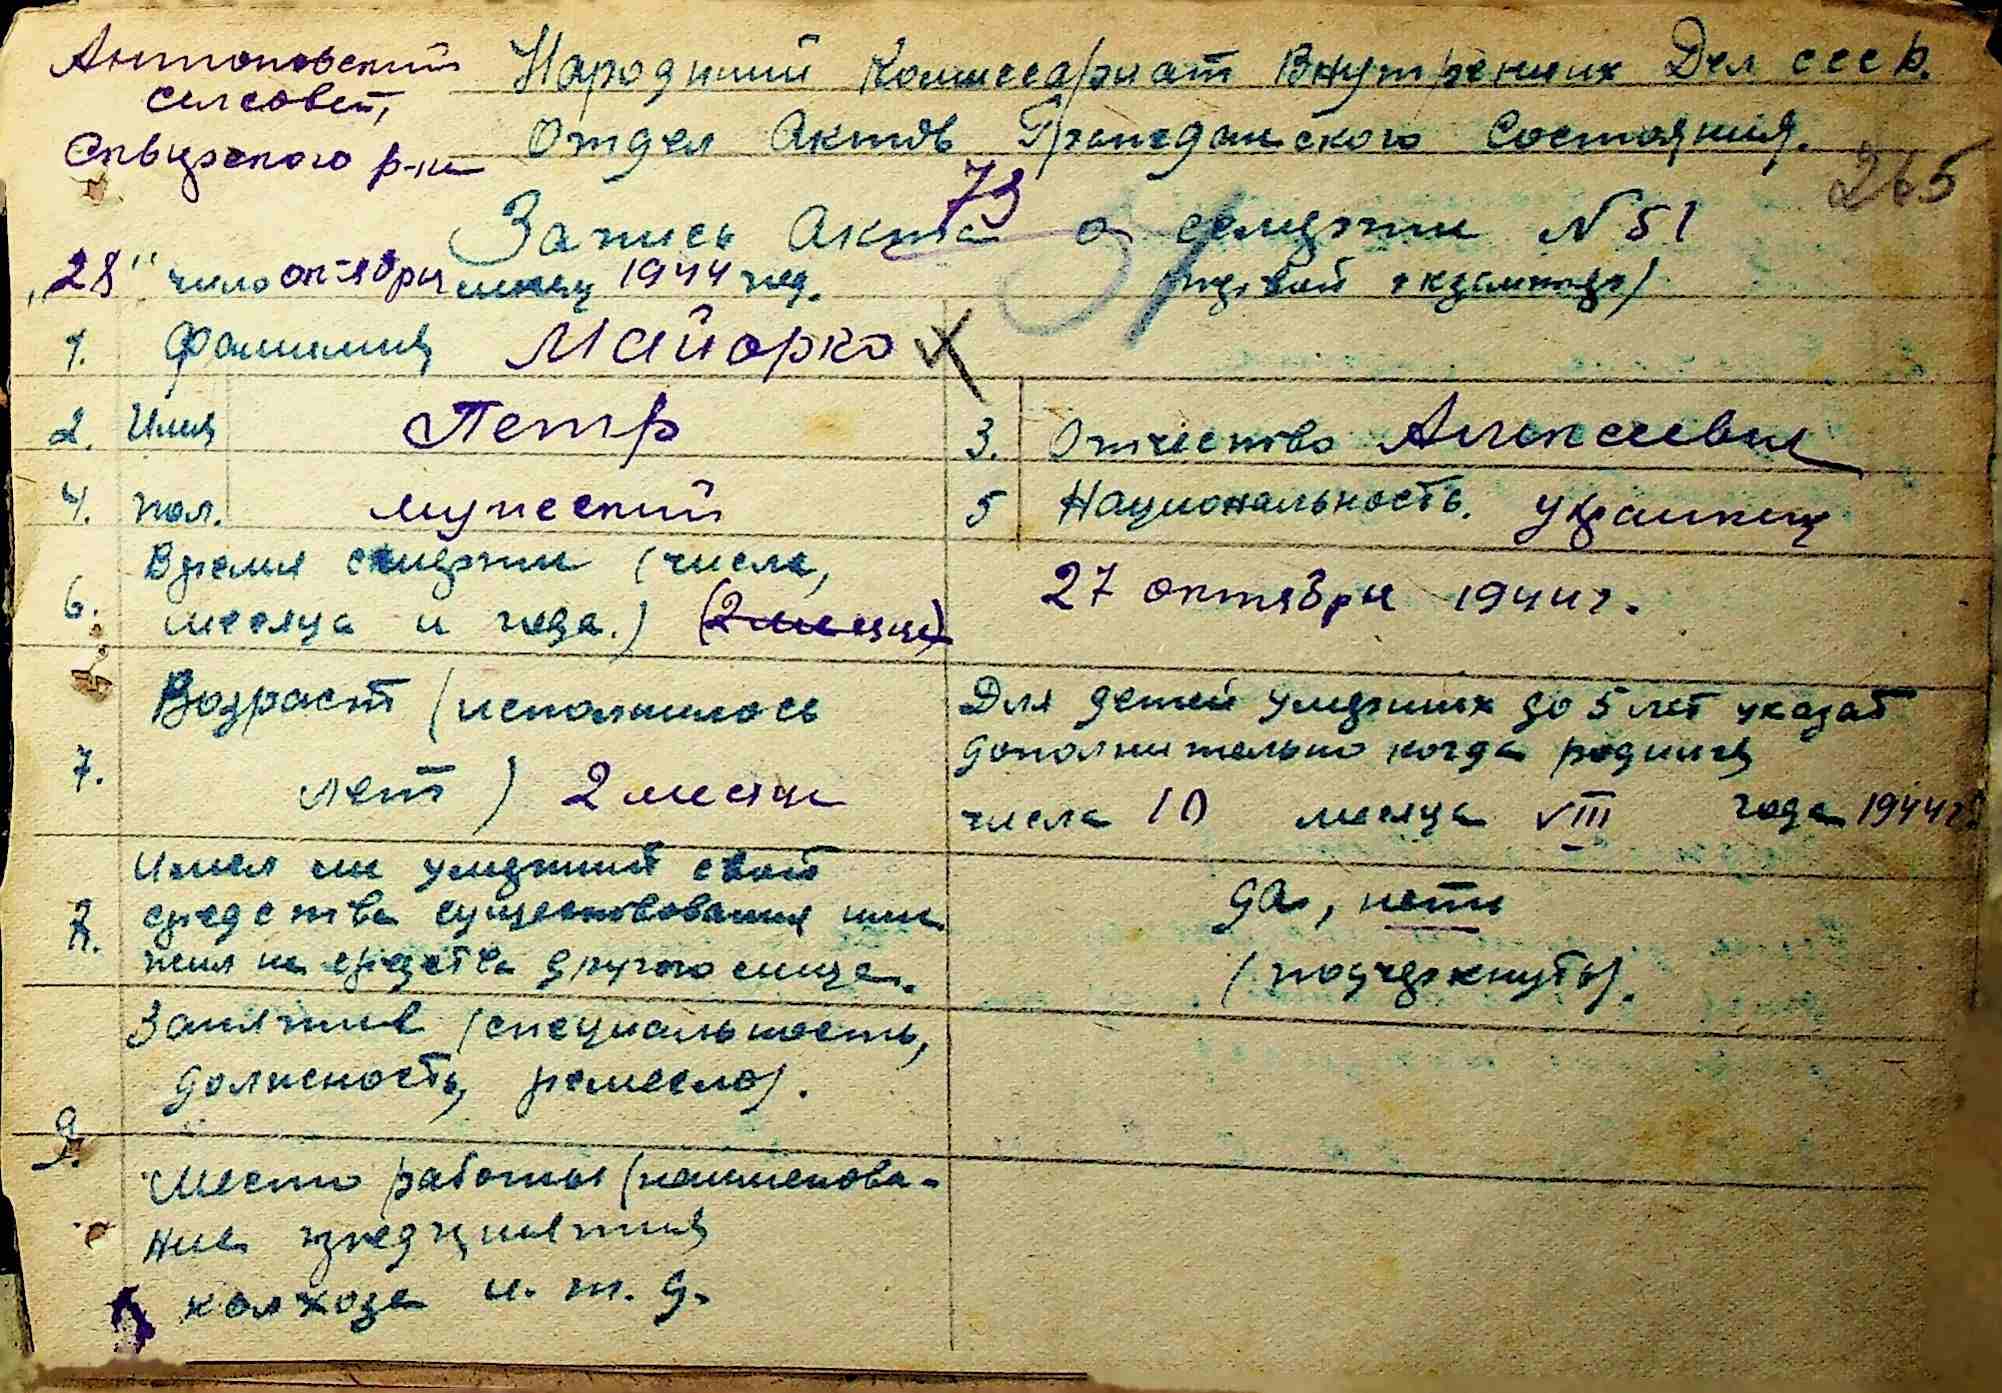 Антоновский
сельсовет,
Сквирского р-на
Народный Комиссариат Внутренних Дел СССР.
Отдел Актов Гражданского Состояния.
265
73
Запись Акта о смерти N 51
"28" число октября месяц 1944 год.
(первой экземпляр)
1. Фамилия Майорко
2. Имя Петр
3. Отчество Алексеевич
4. пол. мужеский
5 Национальность. украинец
6. Время смерти (числа,
месяца и года.) (2 месяца)
27 октября 1944 г.
7. Возраст (исполнилось
лет) 2 месяца
Для детей умерших до 5 лет указат
дополнительно когда родился
числа 10 месяца VIII года 1944 г.
Имел ли умерший свой
средства существования или
жил на средства другого лица.
да, нет
(подчеркнуть).
9. Занятие (специальность,
должность, ремесло).
Место работы (наименова-
ние предприятия
колхоза и. т. д.